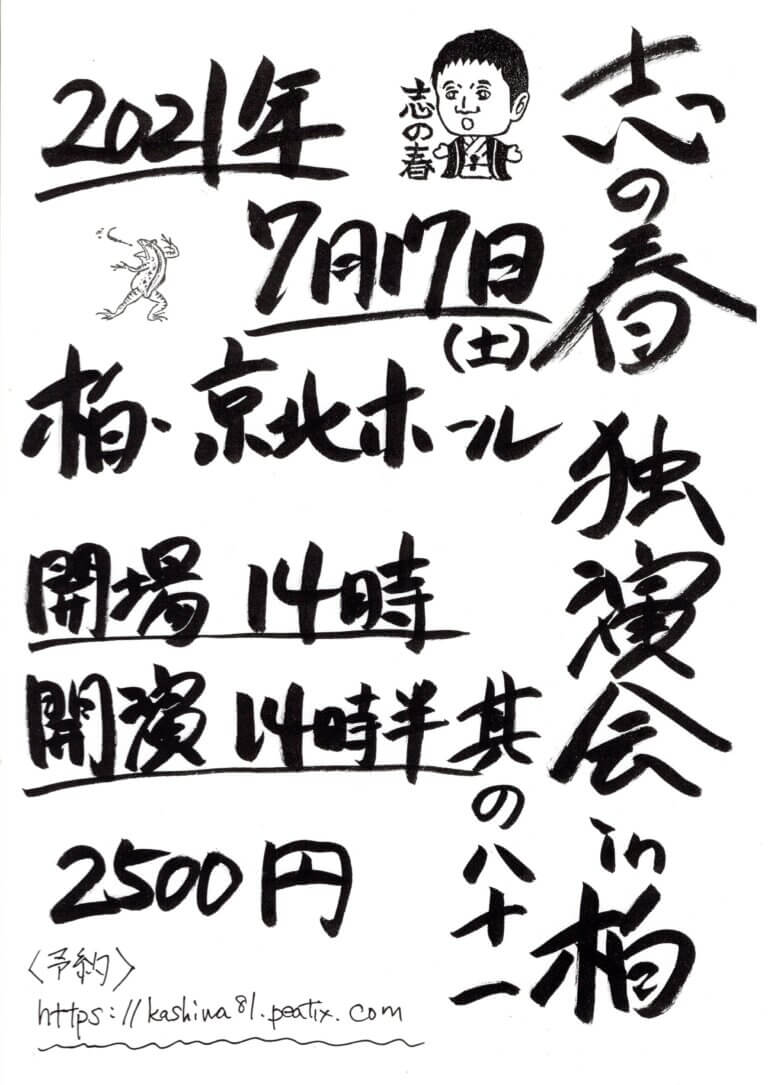 志の春 独演会 in 柏
其の八十一
志の春
2021年
7月17日
(土)
柏・京北ホール
開場 14時
開演 14時半
2500円
〈予約〉
https://kashiwa81.peatix.com